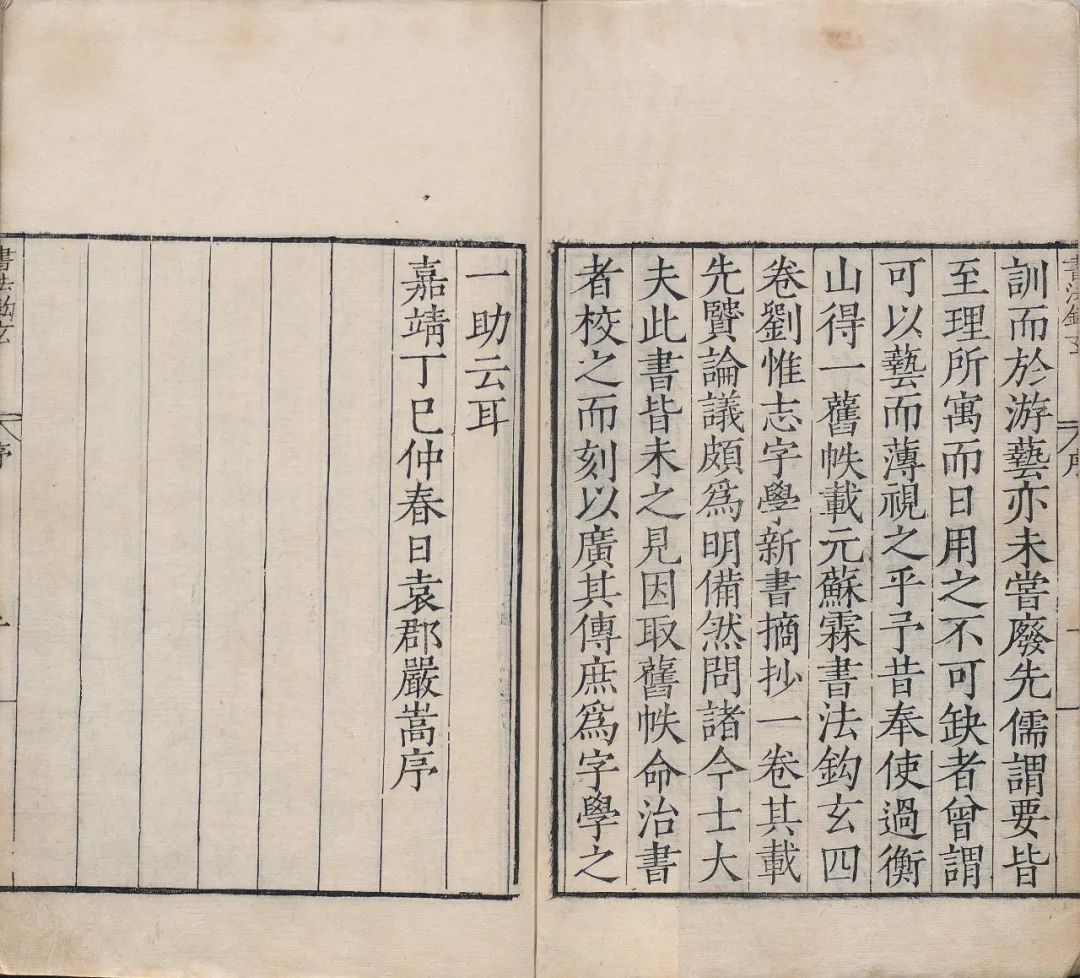 書法鈎玄
序
訓而於游藝亦未嘗廢先儒謂要皆
至理所寓而日用之不可缺者曾謂
可以藝而薄視之乎予昔奉使過衡
山得一舊帙載元蘇霖書法鈎玄四
卷劉惟志字學新書摘抄一卷其載
先贒論議頗爲明備然問諸今士大
夫此書皆未之見因取舊帙命治書
者校之而刻以廣其傳庶爲字學之
一助云耳
嘉靖丁巳仲春日袁郡嚴嵩序
書法鈎玄
序